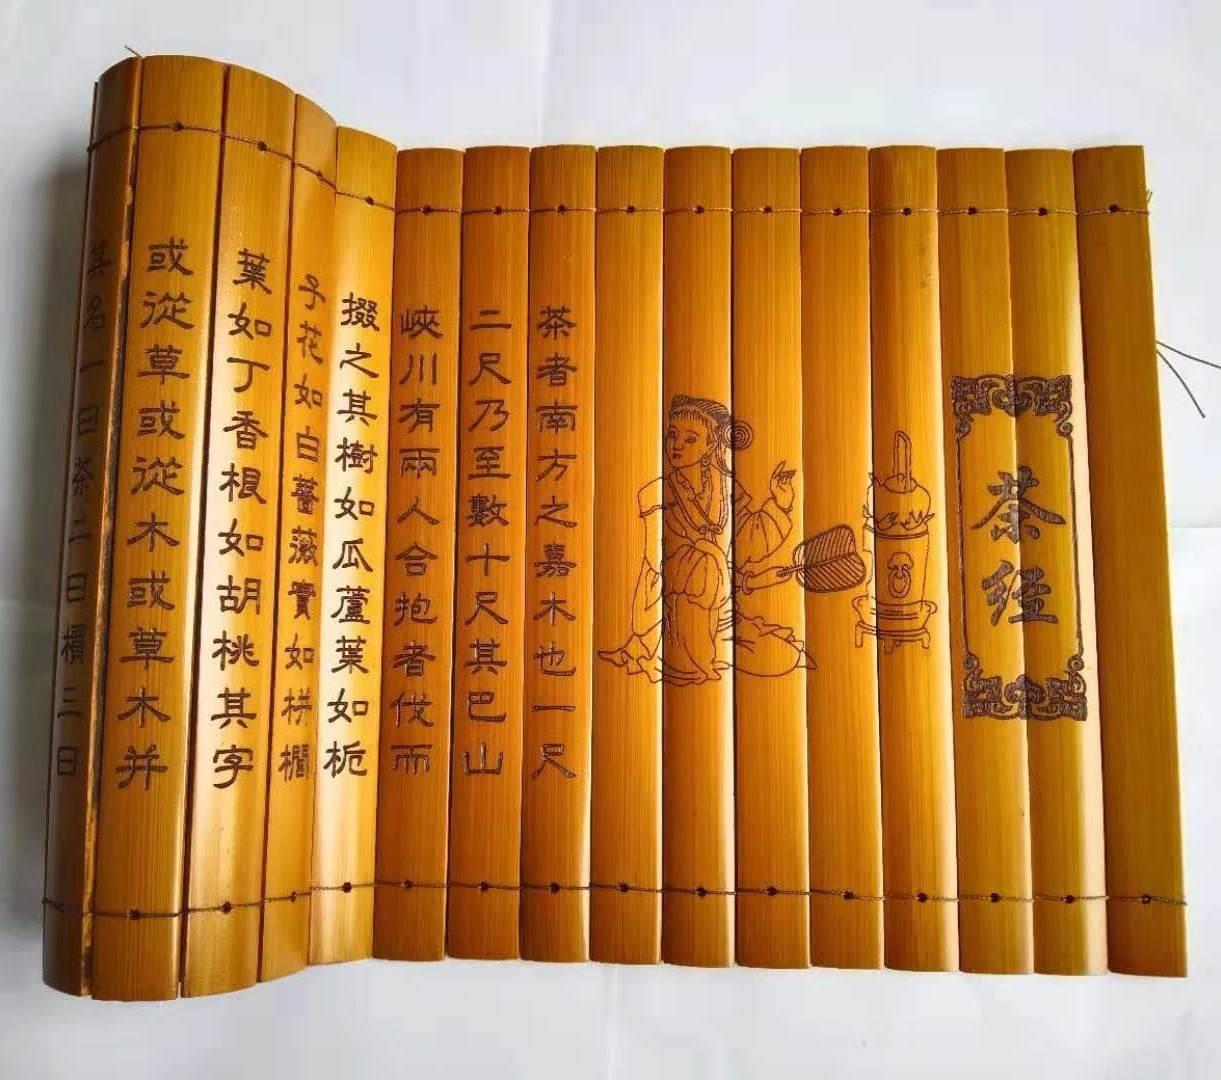 茶经
茶者南方之嘉木也一尺
二尺乃至數十尺其巴山
峽川有兩人合抱者伐而
掇之其樹如瓜蘆葉如栀
子花如白薔薇實如栟櫚
葉如丁香根如胡桃其字
或從草或從木或草木并
其名一曰茶二曰檟三曰